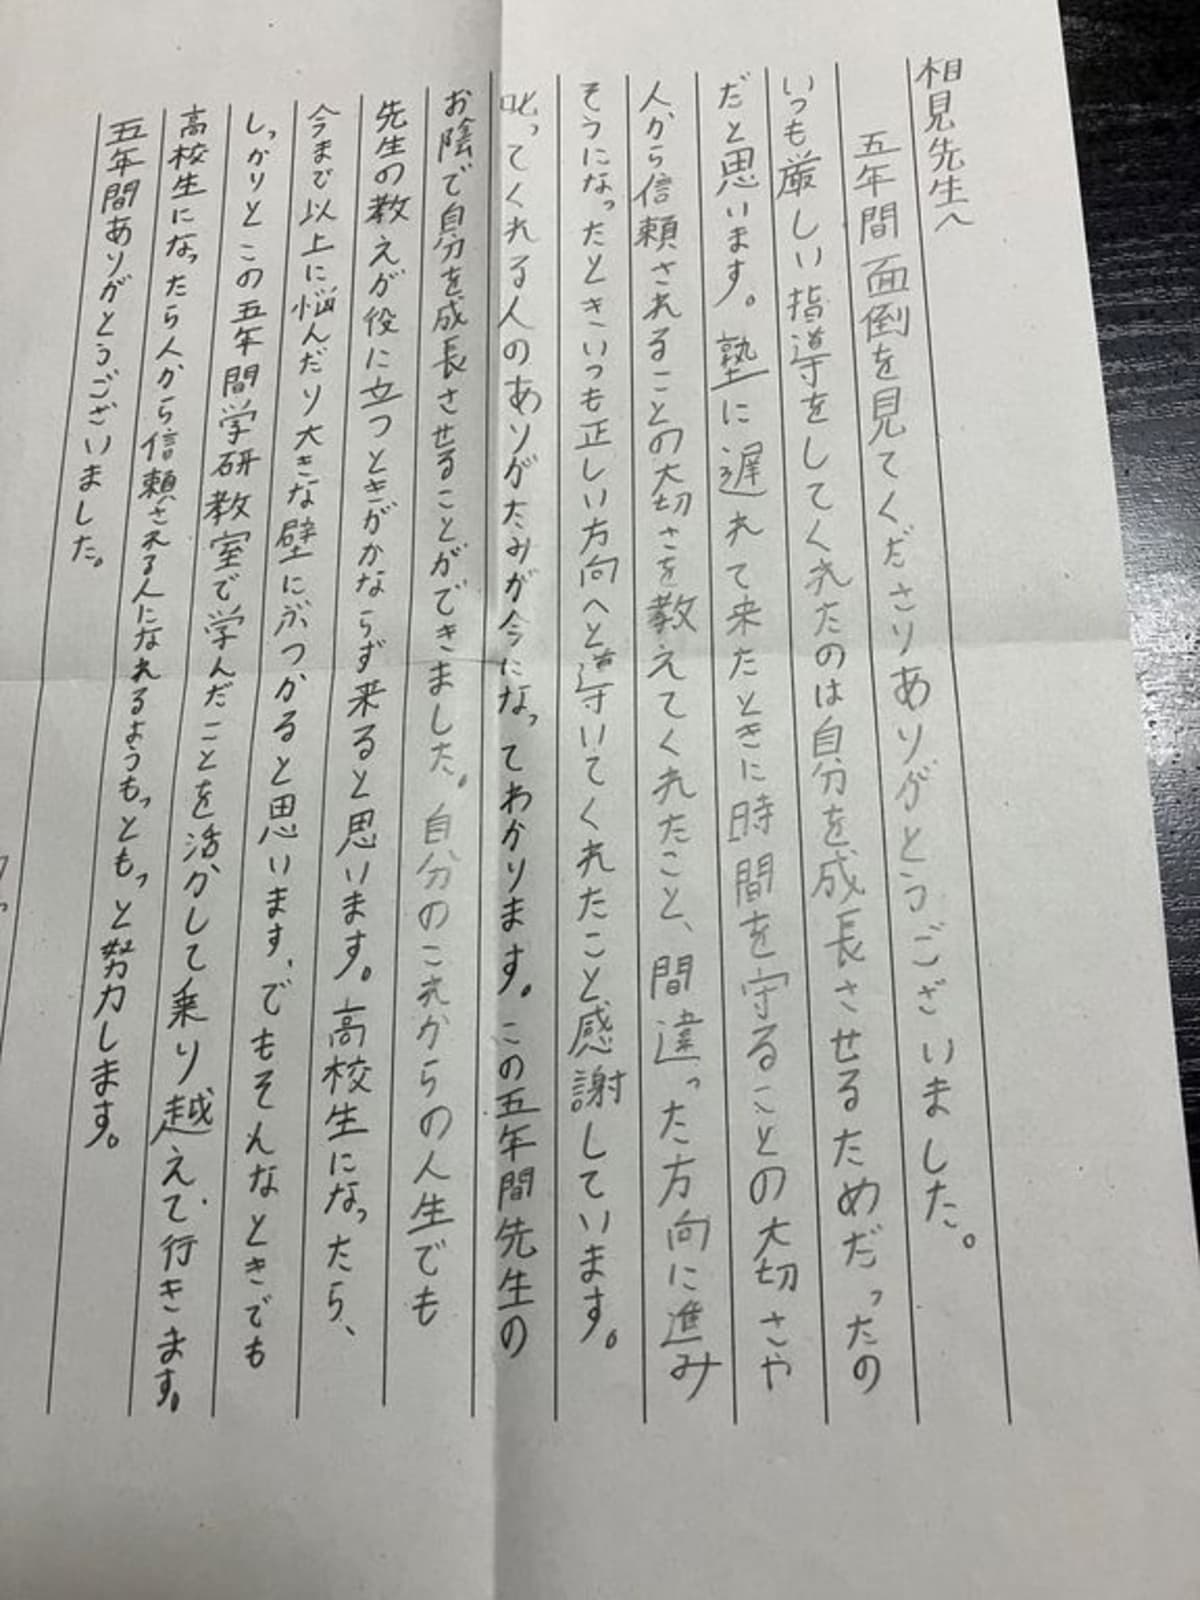 相見先生へ
五年間面倒を見てくださりありがとうございました。
いつも厳しい指導をしてくれたのは自分を成長させるためだったの
だと思います。塾に遅れて来たときに時間を守ることの大切さや
人から信頼されることの大切さを教えてくれたこと、間違った方向に進み
そうになったときいつも正しい方向へと導いてくれたこと感謝しています。
叱ってくれる人のありがたみが今になってわかります。この五年間先生の
お陰で自分を成長させることができました。自分のこれからの人生でも
先生の教えが役に立つときがかならず来ると思います。高校生になったら、
今まで以上に悩んだり大きな壁にぶつかると思います、でもそんなときでも
しっかりとこの五年間学研教室で学んだことを活かして乗り越えて行きます。
高校生になったら人から信頼される人になれるようもっともっと努力します。
五年間ありがとうございました。